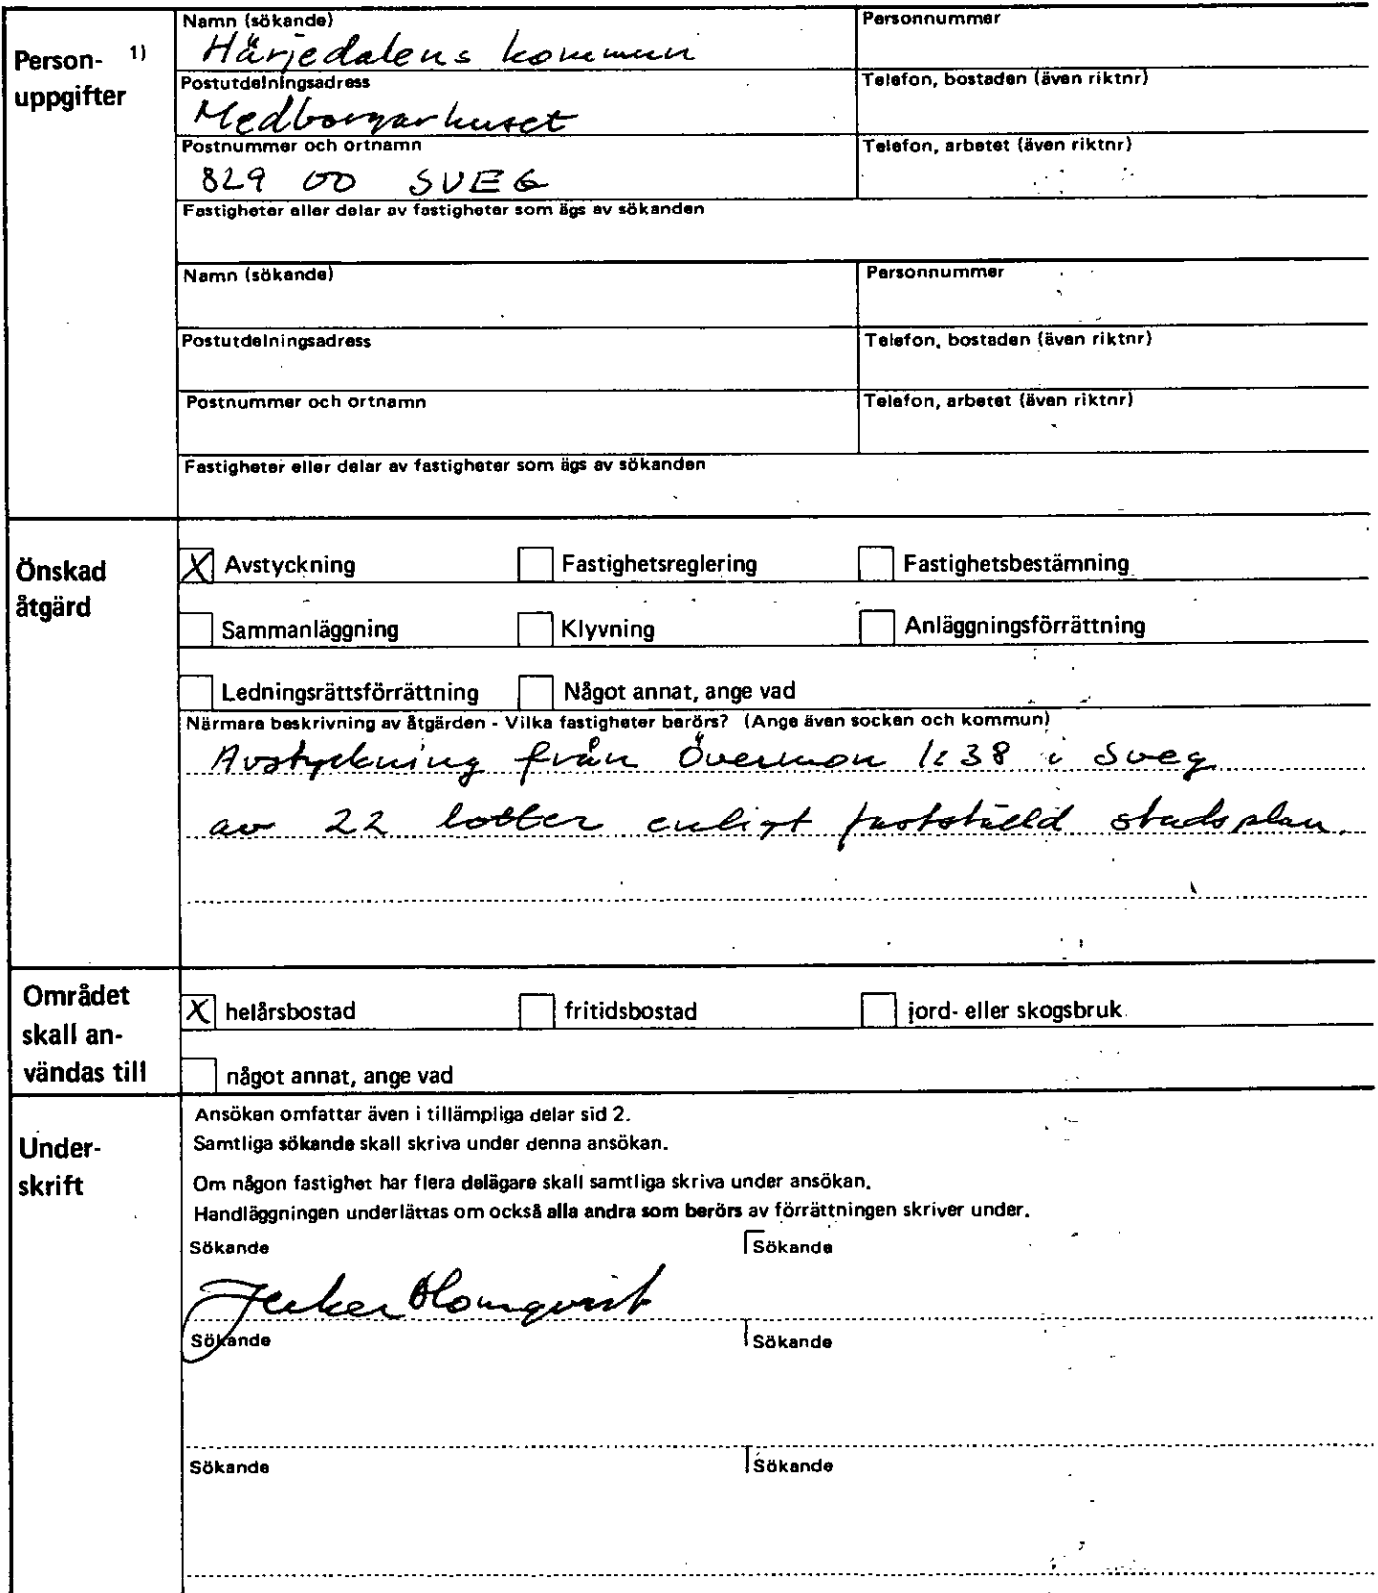 Person- 1)
uppgifter
Namn (sökande)
Härjedalens kommun
Personnummer
Postutdelningsadress
Medborgarhuset
Telefon, bostaden (även riktnr)
Postnummer och ortnamn
829 00 SVEG
Telefon, arbetet (även riktnr)
Fastigheter eller delar av fastigheter som ägs av sökanden
Namn (sökande)
Personnummer
Postutdelningsadress
Telefon, bostaden (även riktnr)
Postnummer och ortnamn
Telefon, arbetet (även riktnr)
Fastigheter eller delar av fastigheter som ägs av sökanden
Önskad
åtgärd
X Avstyckning
Fastighetsreglering
Fastighetsbestämning
Sammanläggning
Klyvning
Anläggningsförrättning
Ledningsrättsförrättning
Något annat, ange vad
Närmare beskrivning av åtgärden - Vilka fastigheter berörs? (Ange även socken och kommun)
Avstyckning från Övermon 1:38 i Sveg
av 22 lotter enligt fastställd stadsplan.
Området
skall an-
vändas till
X helårsbostad
fritidsbostad
jord- eller skogsbruk
något annat, ange vad
Under-
skrift
Ansökan omfattar även i tillämpliga delar sid 2.
Samtliga sökande skall skriva under denna ansökan.
Om någon fastighet har flera delägare skall samtliga skriva under ansökan.
Handläggningen underlättas om också alla andra som berörs av förrättningen skriver under.
Sökande
Sökande
Blomqvist
Sökande
Sökande
Sökande
Sökande